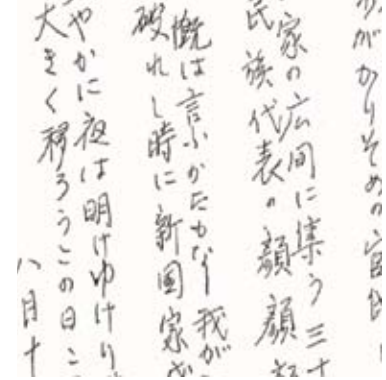 わがかりそめの官邸に
家の広間に集う三十
民族代表の顔顔
慨は言ふかたもなし我が
破れし時に新国家
やかに夜は明けゆけり
大きく移ろうこの日こ
八月十